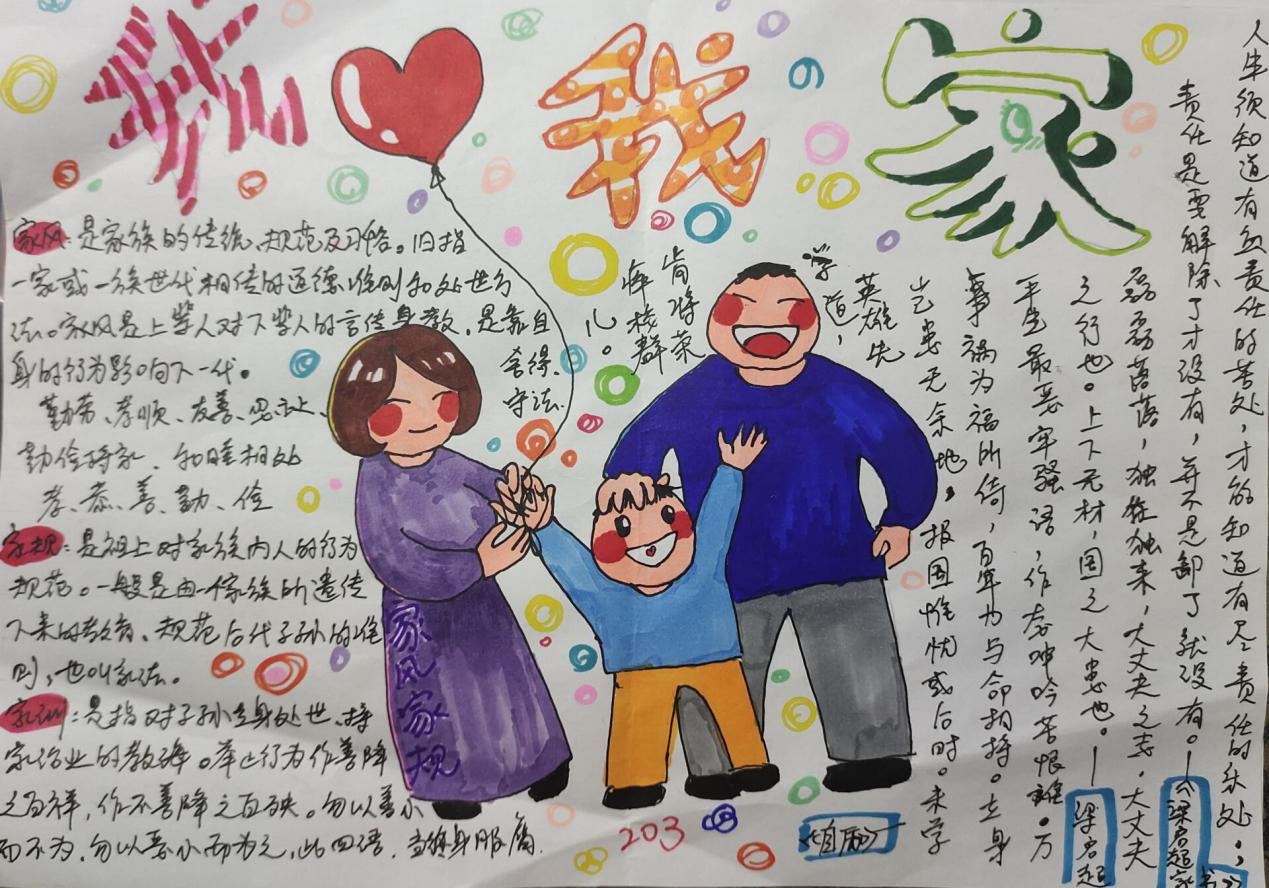 我 我 家
家风:是家族的传统、规范及习俗。旧指
一家或一族世代相传的道德准则和处世方
法。家风是上辈人对下辈人的言传身教,是靠自
身的行为影响下一代。
舍得、
勤劳、孝顺、友善、忍让、
守法
勤俭持家、和睦相处
孝、恭、善、勤、俭
家规:是祖上对家族内人的行为
规范。一般是由一个家族所遗传
下来的教育、规范后代子孙的准
则,也叫家法。
家训:是指对子孙立身处世、持
家治业的教诲。举止行为作善降
之百祥,作不善降之百殃。勿以善小
而不为,勿以恶小而为之,此四语,当终身服膺
家风家规
203
人生须知道有负责任的苦处,才能知道有尽责任的乐处;
责任是要解除了才没有,并不是卸了就没有。—《梁启超家书》
磊磊落落,独往独来,大丈夫之志,大丈夫
之行也。上下无材,国之大患也。—梁启超
平生最恶牢骚语,作态呻吟苦恨谁。万
事祸为福所倚,百年力与命相持。立身
岂患无余地,报国惟忧或后时。未学
英雄先
学道,
肯将荣
瘁校群
儿。
《自励》